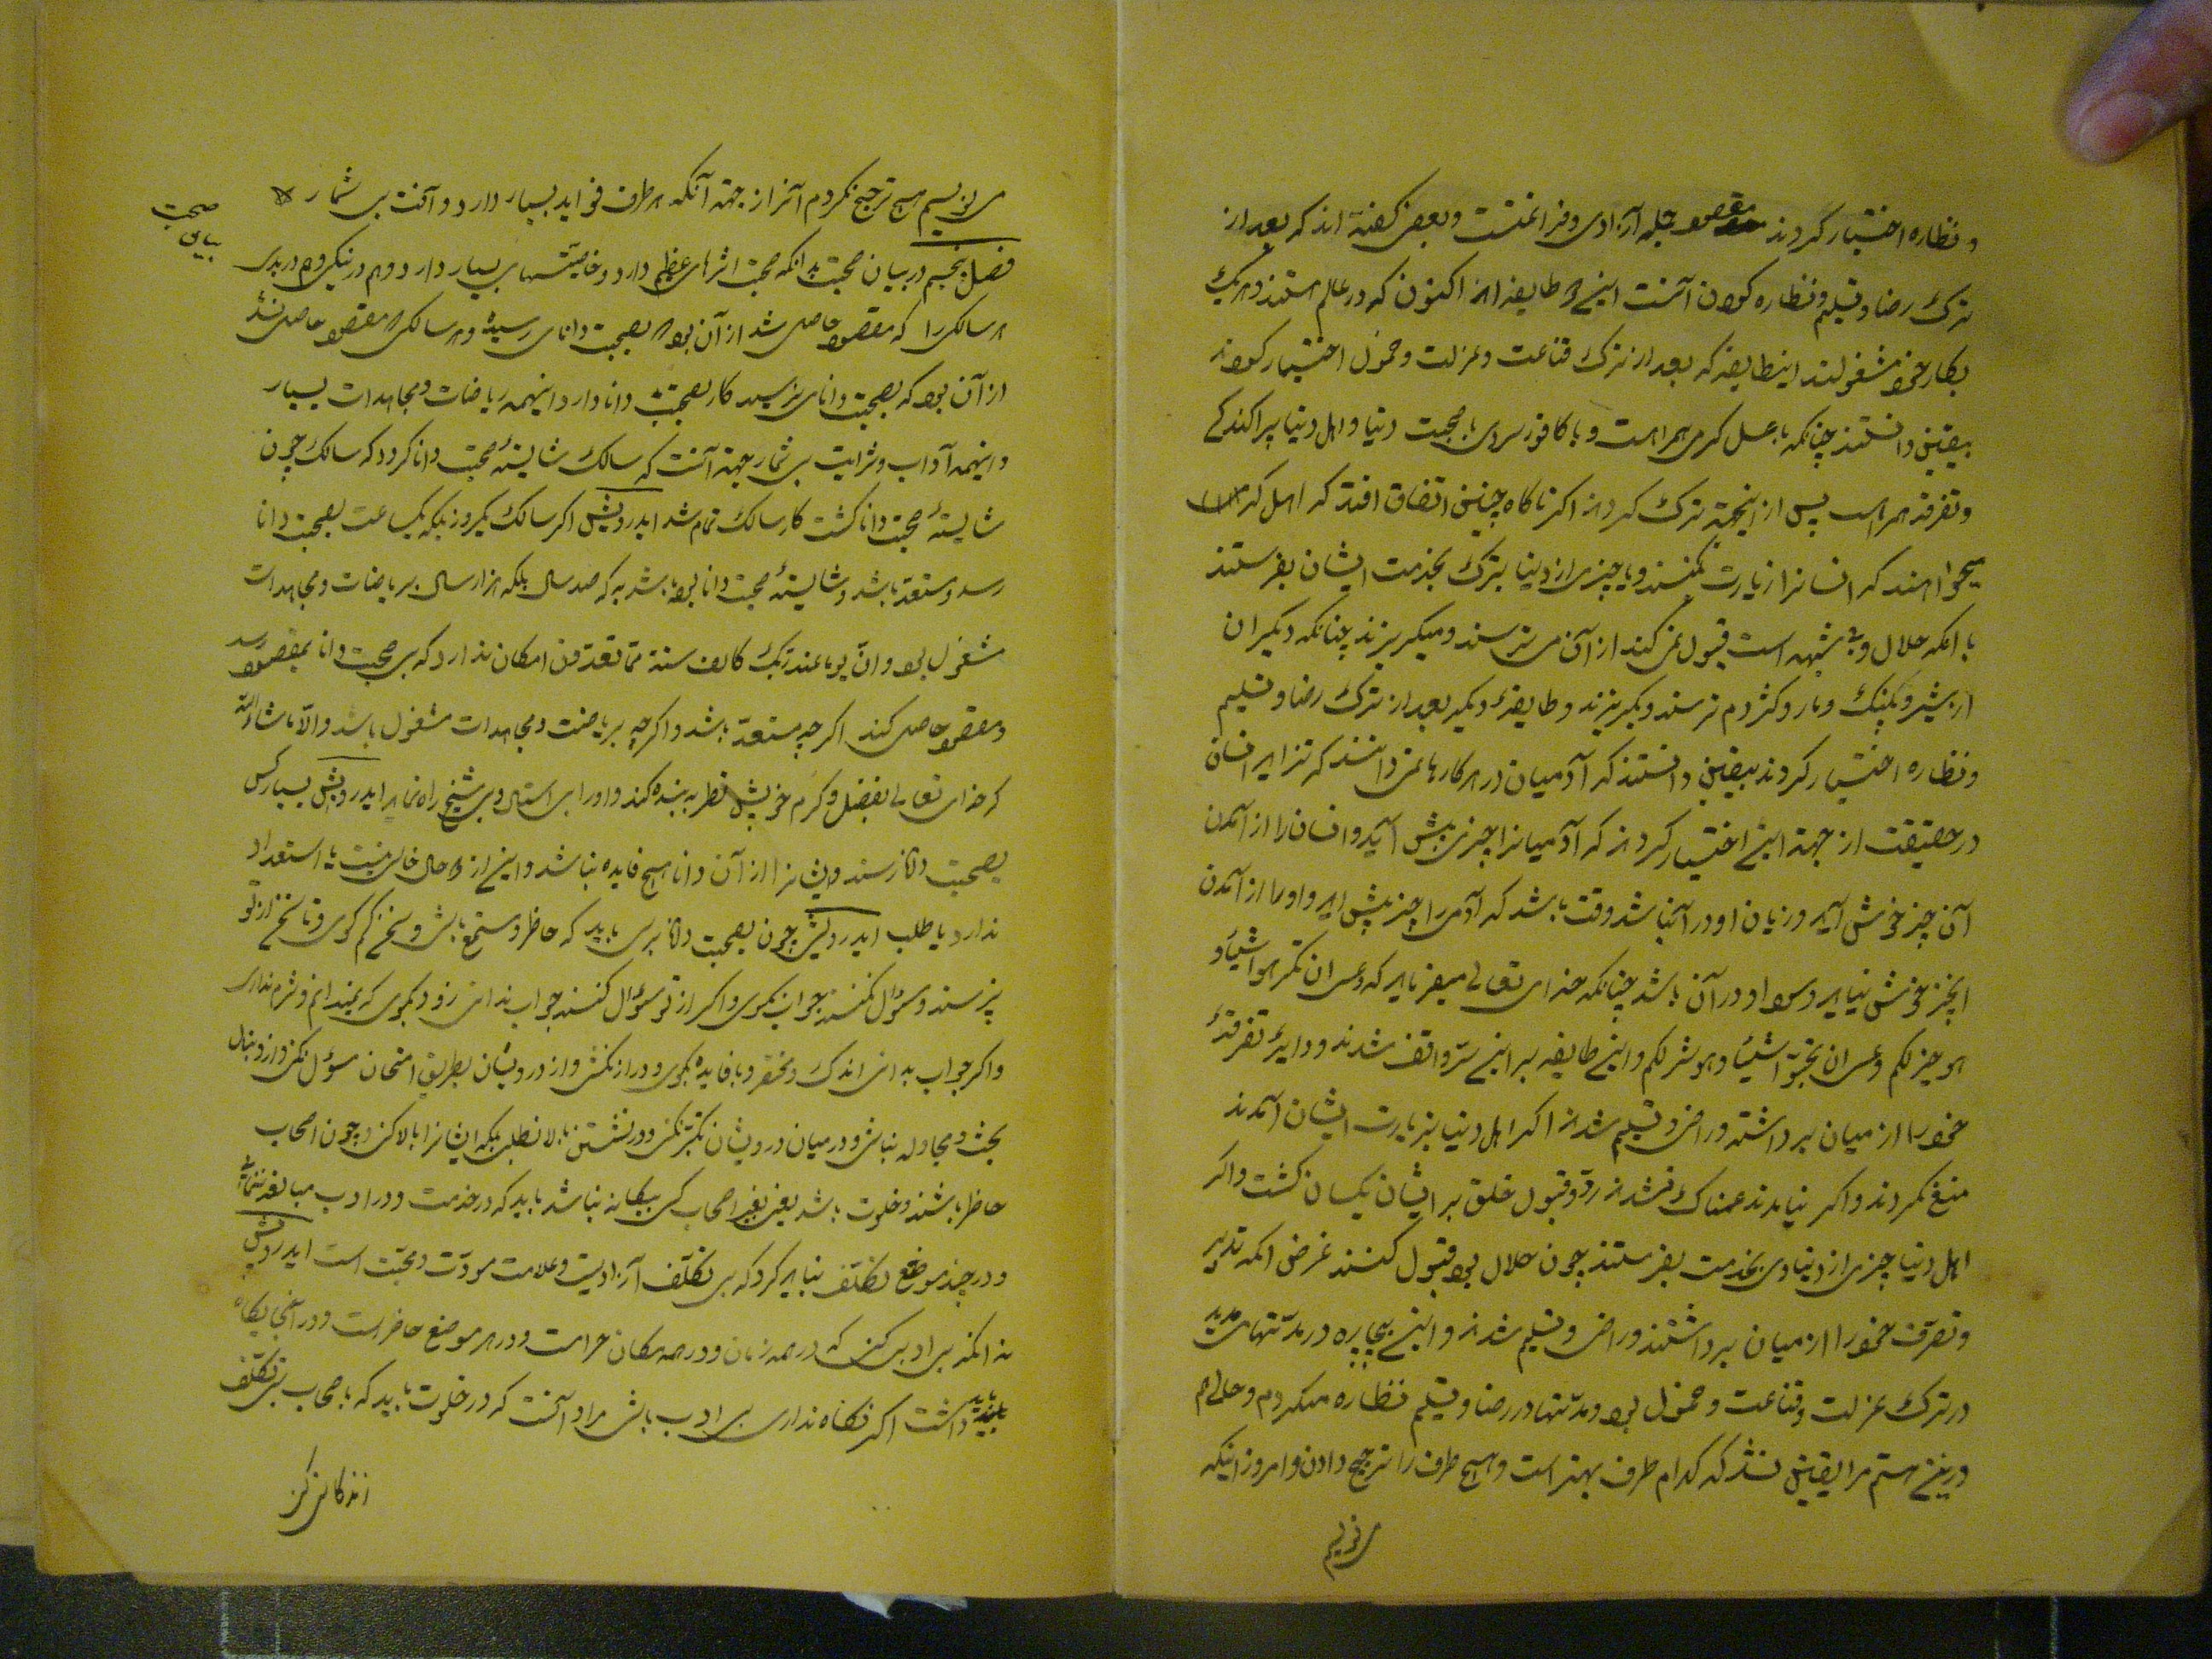 و نظاره اختیار کردند مقصود جمله آزادی و فراغتست و بعضی گفته اند که بعد از
ترک رضا و تسلیم و نظاره کردن است این هر دو طایفه اند اکنون که در عالم هستند و هر یک
بکار خود مشغولند این طایفه که بعد از ترک قناعت و عزلت و خمول اختیار کردند
بیقین دانستند چنانکه با عسل گرمی همراهست و با کافور سردی با صحبت دنیا و اهل دنیا پراکندگی
و تفرقه همراهست پس از اینجهة ترک کردند اگر ناگاه چنین اتفاق افتد که اهل
میخواهند که ایشانرا زیارت کنند و یا چیزی از دنیا بتبرک بخدمت ایشان بفرستند
با آنکه حلال و بی شبهه است قبول نمی کنند از آن می ترسند و میگریزند چنانکه دیگران
از شیر و پلنگ و مار و کژدم ترسند و بگریزند و طایفهٔ دیگر بعد از ترک رضا و تسلیم
و نظاره اختیار کردند بیقین دانستند که آدمیان در هر کارها نمی دانند که تزاید ایشان
در حقیقت از جهة این اختیار کردند که آدمیانرا چیزی پیش آید و ایشان را از آمدن
آن چیز خوش آید و زیان او در آن باشد وقت باشد که آدمی را چیزی پیش آید و او را از آمدن
آنچیز خوش نیاید و سود او در آن باشد چنانکه خدای تعالی میفرماید که وعسی ان تکرهوا شیئا و
هو خیر لکم وعسی ان تحبوا شیئا و هو شر لکم و این طایفه بر این سر واقف شدند و تدبیر و تصرف
خود را از میان برداشته و راضی و تسلیم شدند اگر اهل دنیا بزیارت ایشان آمدند
منع نکردند و اگر نیامدند غمناک نشدند رد و قبول خلق بر ایشان یکسان گشت و اگر
اهل دنیا چیزی از دنیاوی بخدمت بفرستند چون حلال بود قبول کنند غرض آنکه تدبیر
و تصرف خود را از میان برداشتند و راضی و تسلیم شدند و این بیچاره در مدتهای مدید
در ترک عزلت و قناعت و خمول بود و مدتها در رضا و تسلیم نظاره میکردم و حالی هم
درین هستم مرا بیقین نشد که کدام طرف بهتر است و هیچ طرف را ترجیح دادن و امروز اینکه
می نویسم
می نویسم هیچ ترجیح نکردم آنرا از جهة آنکه هر طرف فواید بسیار دارد و آفت بی شمار
صحبت
بیان
فصل پنجم در بیان صحبت بدانکه صحبت اثرهای عظیم دارد و خاصیتهای بسیار دارد و هم در نیکی و هم در بدی
هر سالکی را که مقصود حاصل شد از آن بود که بصحبت دانای رسیده و هر سالکی را مقصود حاصل نشد
از آن بود که بصحبت دانای نرسید کار بصحبت دانا دارد اینهمه ریاضات و مجاهدات بسیار
و اینهمه آداب و شرایت بی شمار جهة آنست که سالک شایستهٔ صحبت دانا گردد که سالک چون
شایستهٔ صحبت دانا گشت کار سالک تمام شد ایدرویش اگر سالک یکروز بلکه یکساعت بصحبت دانا
رسد و مستعد باشد و شایستهٔ صحبت دانا بود باشد به که صد سال بلکه هزار سال بریاضات و مجاهدات
مشغول بود وانّ یوما عند ربک کالف سنة مما تعدون امکان ندارد که بی صحبت دانا بمقصود رسد
و مقصود حاصل کند اگر چه مستعد باشد و اگر چه بریاضت و مجاهدات مشغول باشد والا ماشاءالله
که خدای تعالی بفضل و کرم خویش نظر به بنده کند و او را بی استاد و بی شیخ راه نماید ایدرویش بسیار کس
بصحبت دانا رسند و ایشانرا از آن دانا هیچ فایده نباشد و این از دو حال خالی نیست یا استعداد
ندارد یا طلب ایدرویش چون بصحبت دانا برسی باید که حاضر و مستمع باشی و سخن کم گوی و تا سخن از تو
نپرسند و سؤال نکنند جواب نگوی و اگر از تو سؤال کنند جواب ندانی زود بگوی که نمیدانم و شرم نداری
و اگر جواب بدانی اندک و مختصر و با فایده بگوی و دراز نکشی و از درویشان بطریق امتحان سؤل نکن و از دنبال
بحث و مجادله نباش و در میان درویشان تکبر نکن و در نشستن بالا نطلب بلکه ایشانرا بالا کن و چون اصحاب
حاضر باشند و خلوت باشد یعنی بغیر اصحاب کسی بیگانه نباشد باید که در خدمت و در ادب مبالغه ننمائی
و در چند موضع تکلف نباید کرد که بی تکلف آزادیست و علامت مودت و محبت است ایدرویش
نه آنکه بی ادبی کن که در همه زمان و در همه مکان حرامست و در هر موضع حاضر است و در آنجا نگاه
باید داشت اگر نگاه نداری بی ادب باشی مراد آنست که در خلوت باید که با اصحاب بی تکلف
زندگانی کن